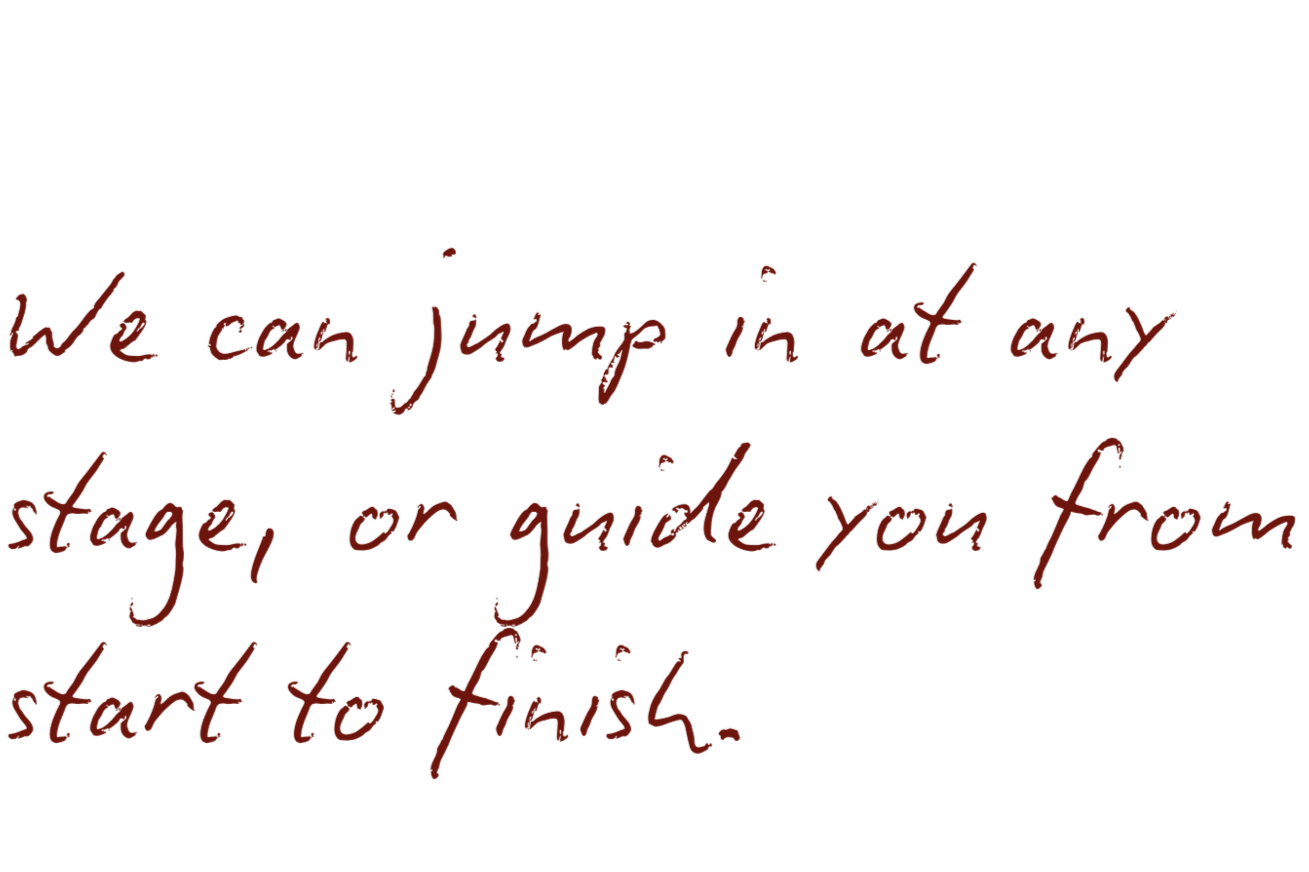 We can jump in at any
stage, or guide you from
start to finish.